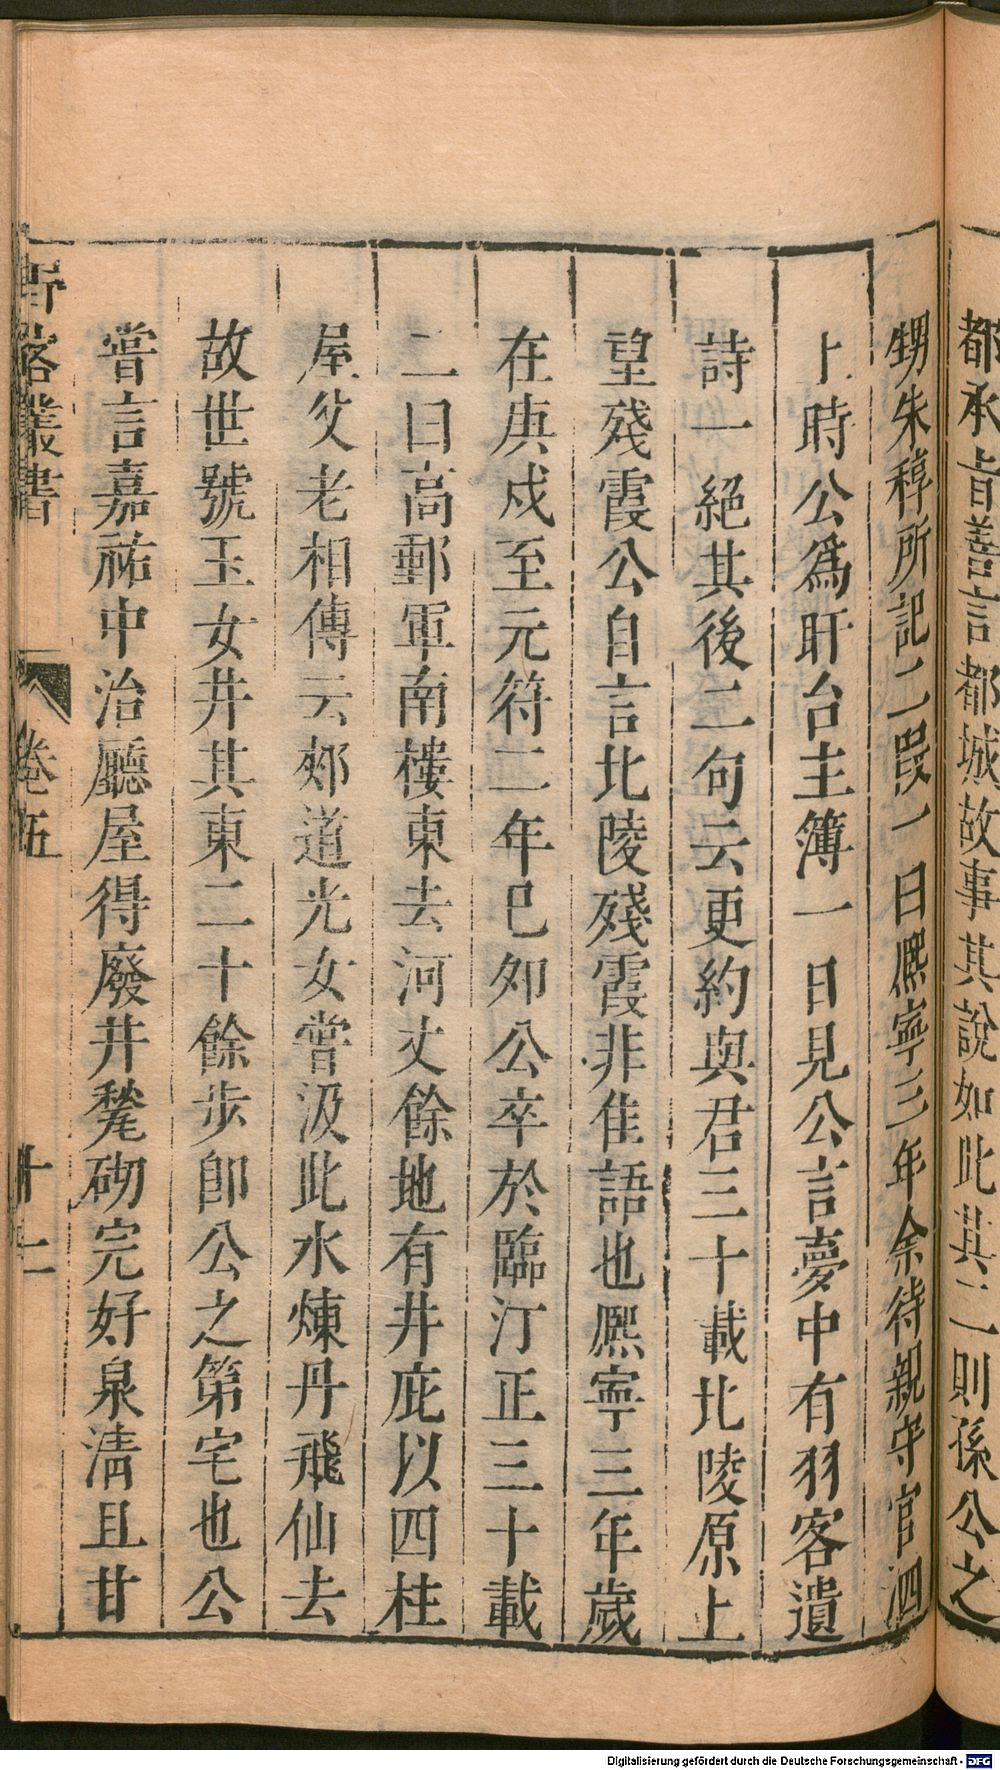 都承旨善言都城故事其說如此其二則孫公之
甥朱稕所記二叚一曰熈寧三年余待親守官泗
上時公爲盱台主簿一日見公言夢中有羽客遺
詩一絕其後二句云更約與君三十載北陵原上
望殘霞公自言北陵殘霞非佳語也熈寧三年歲
在庚戍至元符二年巳夘公卒於臨汀正三十載
二曰高郵軍南樓東去河丈餘地有井庇以四柱
屋父老相傳云郊道光女嘗汲此水煉丹飛仙去
故世號玉女井其東二十餘步即公之第宅也公
嘗言嘉祐中治廳屋得廢井甃砌完好泉淸且甘
卷五
Digitalisierung gefördert durch die Deutsche Forschungsgemeinschaft - DFG